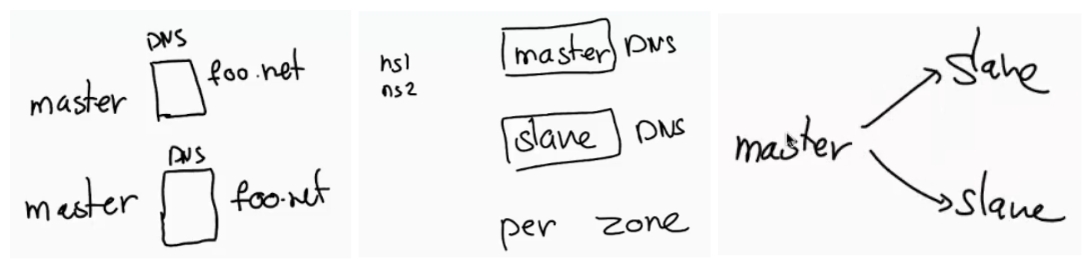 DNS
master foo.net
DNS
master foo.net
ns1
ns2
master DNS
slave DNS
per zone
slave
master
slave